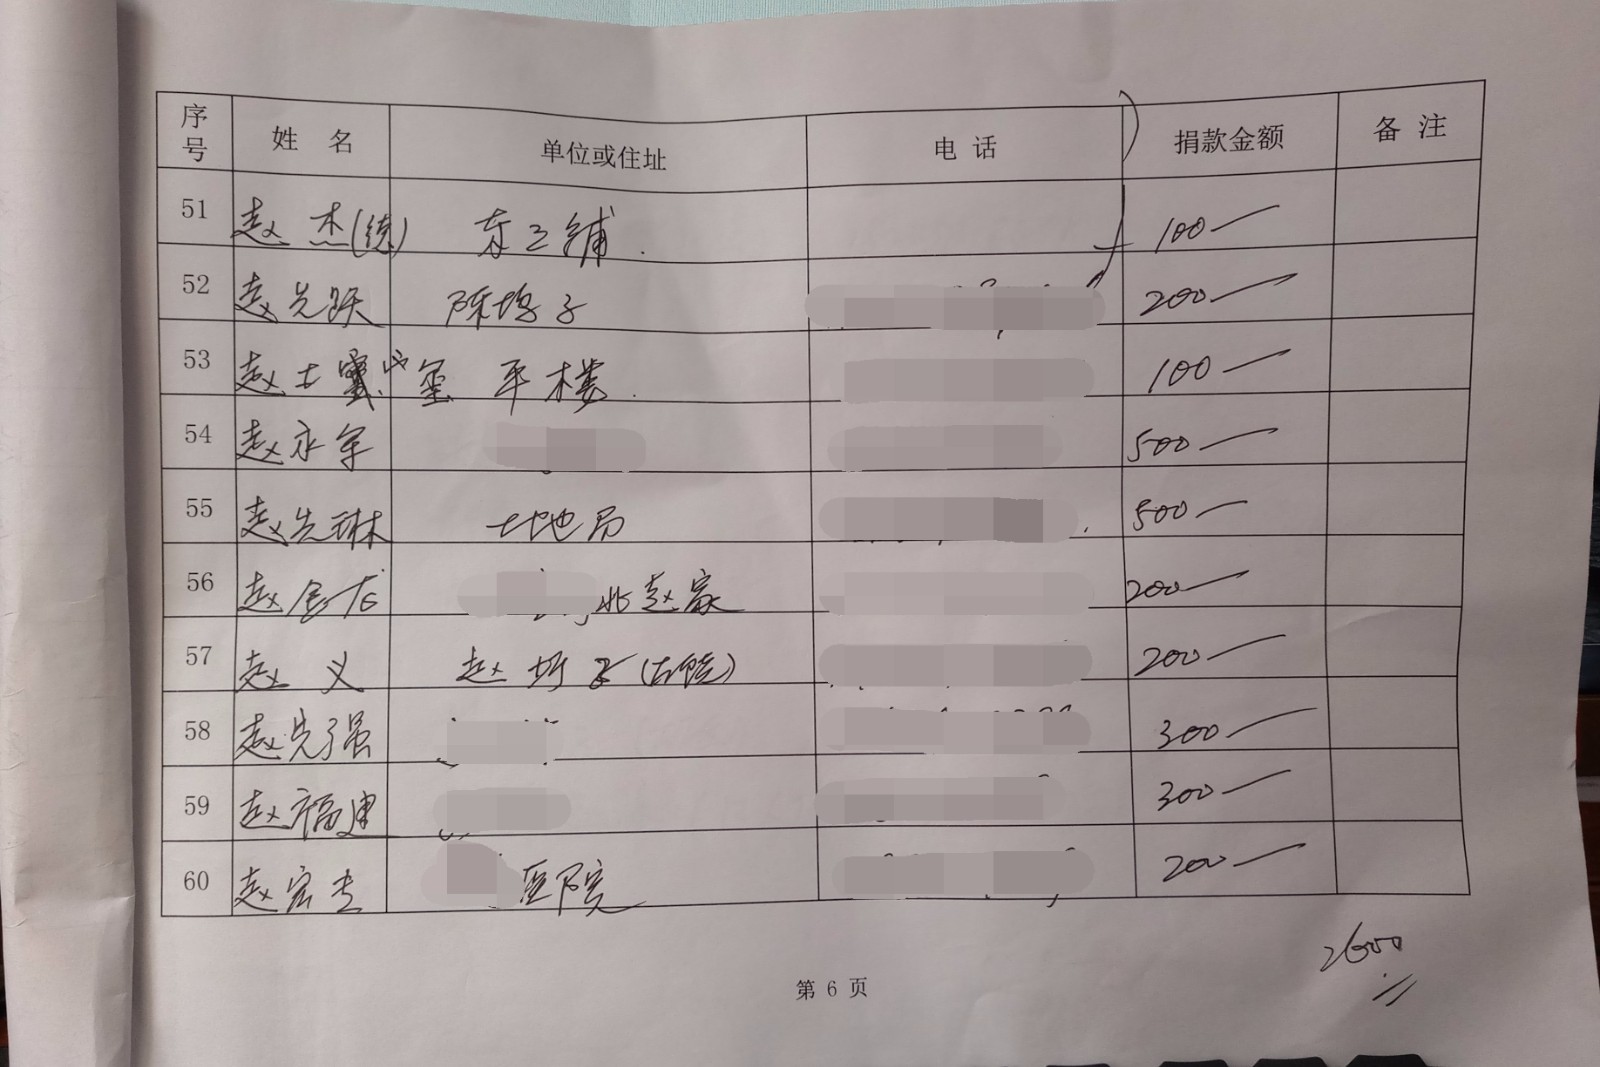 序号 姓 名 单位或住址 电 话 捐款金额 备 注
51 赵 杰(练) 东三铺 100
52 赵先跃 陈塆子 200
53 赵士 玺 平楼 100
54 赵永军 500
55 赵先琳 土地局 500
56 赵金龙 北赵家 200
57 赵 义 赵圩子 200
58 赵先强 300
59 赵福建 300
60 赵宏 医院 200
2600
第 6 页